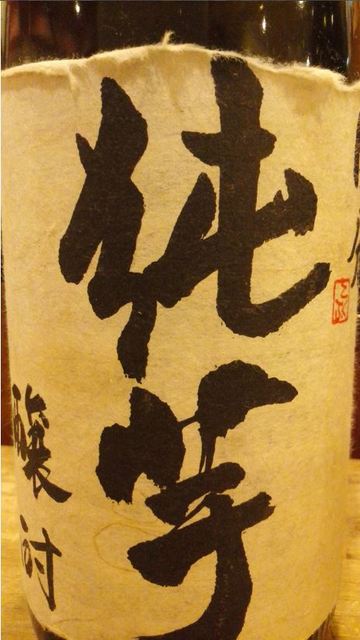 純芋
醸酎